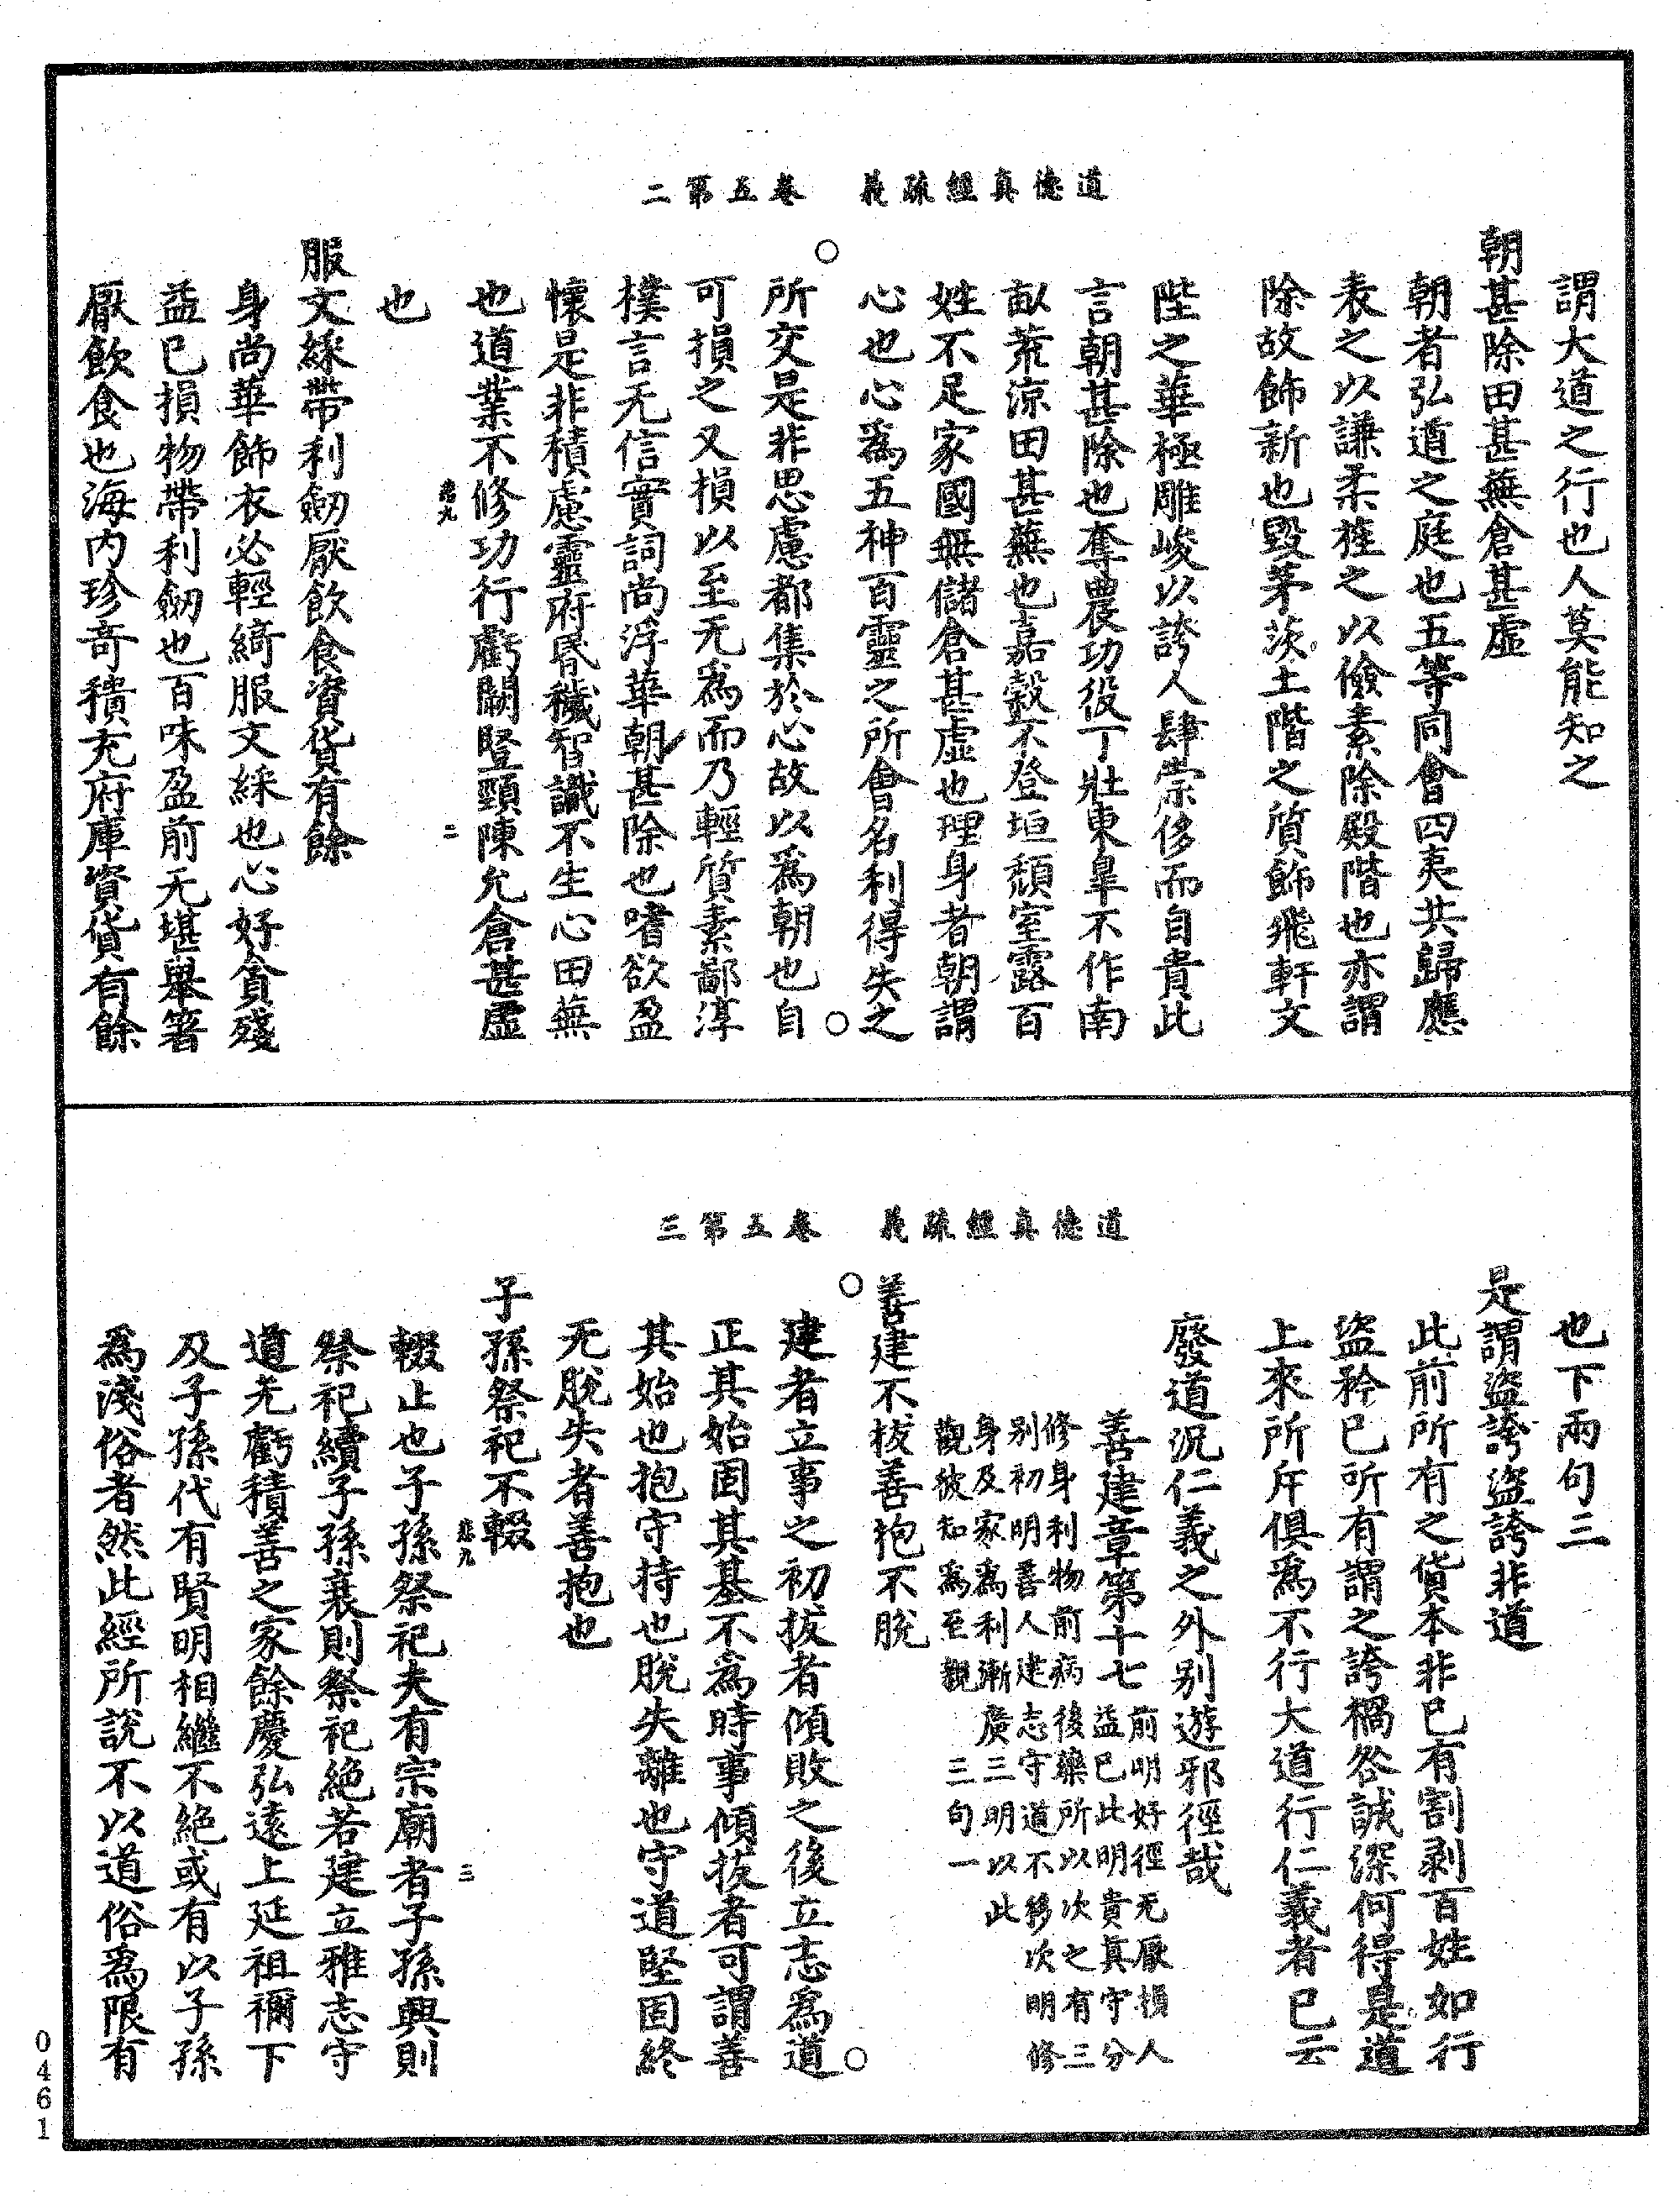 道德真經疏義　卷五第二
謂大道之行也人莫能知之
朝甚除田甚蕪倉甚虛
朝者弘道之庭也五等同會四夷共歸應
表之以謙柔旌之以儉素除殿階也亦謂
除故飾新也毀茅茨土階之質飾飛軒文
陛之華極雕峻以誇人肆崇侈而自貴此
言朝甚除也奪農功役丁壯東臯不作南
畝荒涼田甚蕪也嘉穀不登垣頹室露百
姓不足家國無儲倉甚虛也理身者朝謂
心也心爲五神百靈之所會名利得失之
所交是非思慮都集於心故以爲朝也自
可損之又損以至无爲而乃輕質素鄙淳
樸言无信實詞尚浮華朝甚除也嗜欲盈
懷是非積慮靈府昏穢智識不生心田蕪
也道業不修功行虧闕竪頸陳允倉甚虛
也
服文綵帶利劒厭飲食資貨有餘
身尚華飾衣必輕綺服文綵也心好貪殘
益已損物帶利劒也百味盈前无堪舉箸
厭飲食也海內珍奇積充府庫資貨有餘
道德真經疏義　卷五第三
也下兩句三
是謂盜誇盜誇非道
此前所有之貨本非已有割剥百姓如行
盜矜已所有謂之誇禍咎誠深何得是道
上來所斥俱爲不行大道行仁義者已云
廢道況仁義之外别遊邪徑哉
善建章第十七
前明好徑无厭損人
益已此明貴真守分
修身利物前病後藥所以次之有三
别初明善人建志守道不移次明修
身及家爲利漸廣三明以此
觀彼知爲至觀　三句一
善建不拔善抱不脫
建者立事之初拔者傾敗之後立志爲道
正其始固其基不爲時事傾拔者可謂善
其始也抱守持也脫失離也守道堅固終
无脫失者善抱也
子孫祭祀不輟
輟止也子孫祭祀夫有宗廟者子孫興則
祭祀續子孫衰則祭祀絶若建立雅志守
道无虧積善之家餘慶弘遠上延祖禰下
及子孫代有賢明相繼不絶或有以子孫
爲淺俗者然此經所說不以道俗爲限有
0461